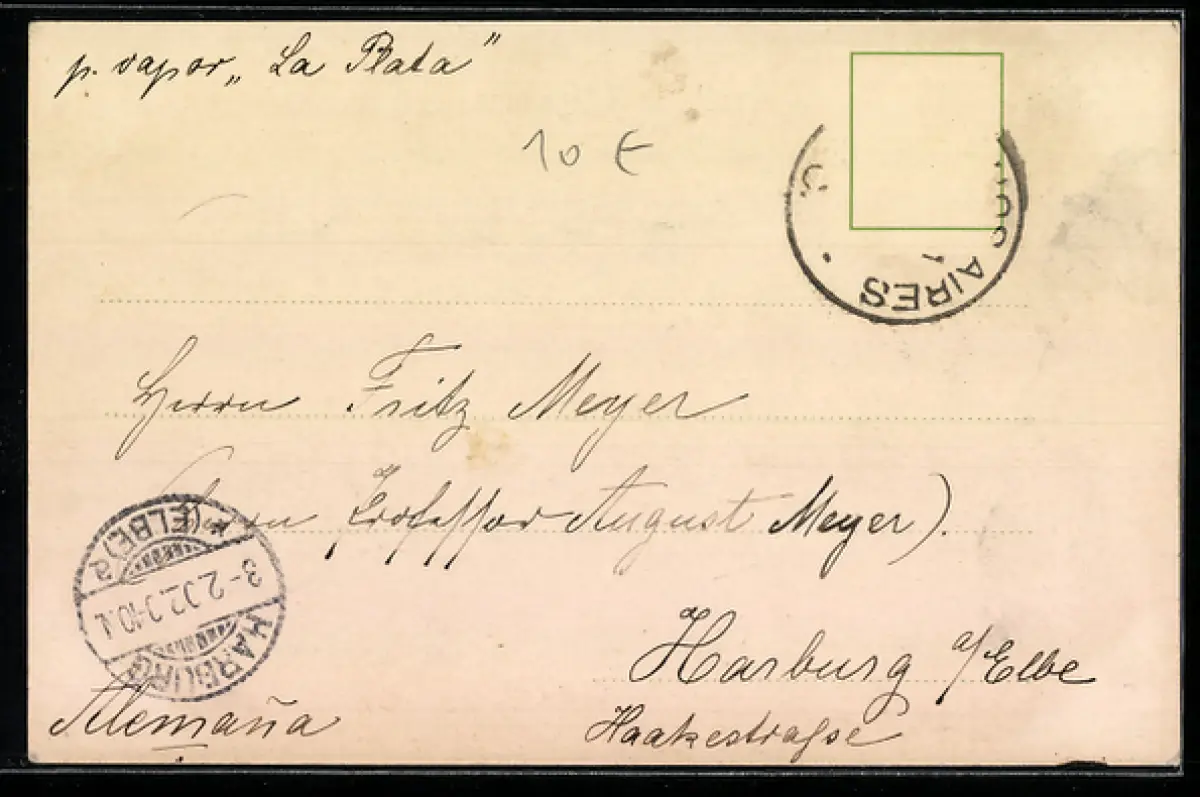 p. vapor „La Plata"
10 €
AIRES
Herrn Fritz Meyer
Professor August Meyer).
HARBURG
(ELBE) a
3-2.02.
Harburg a/Elbe
Alemaña
Haakestraße